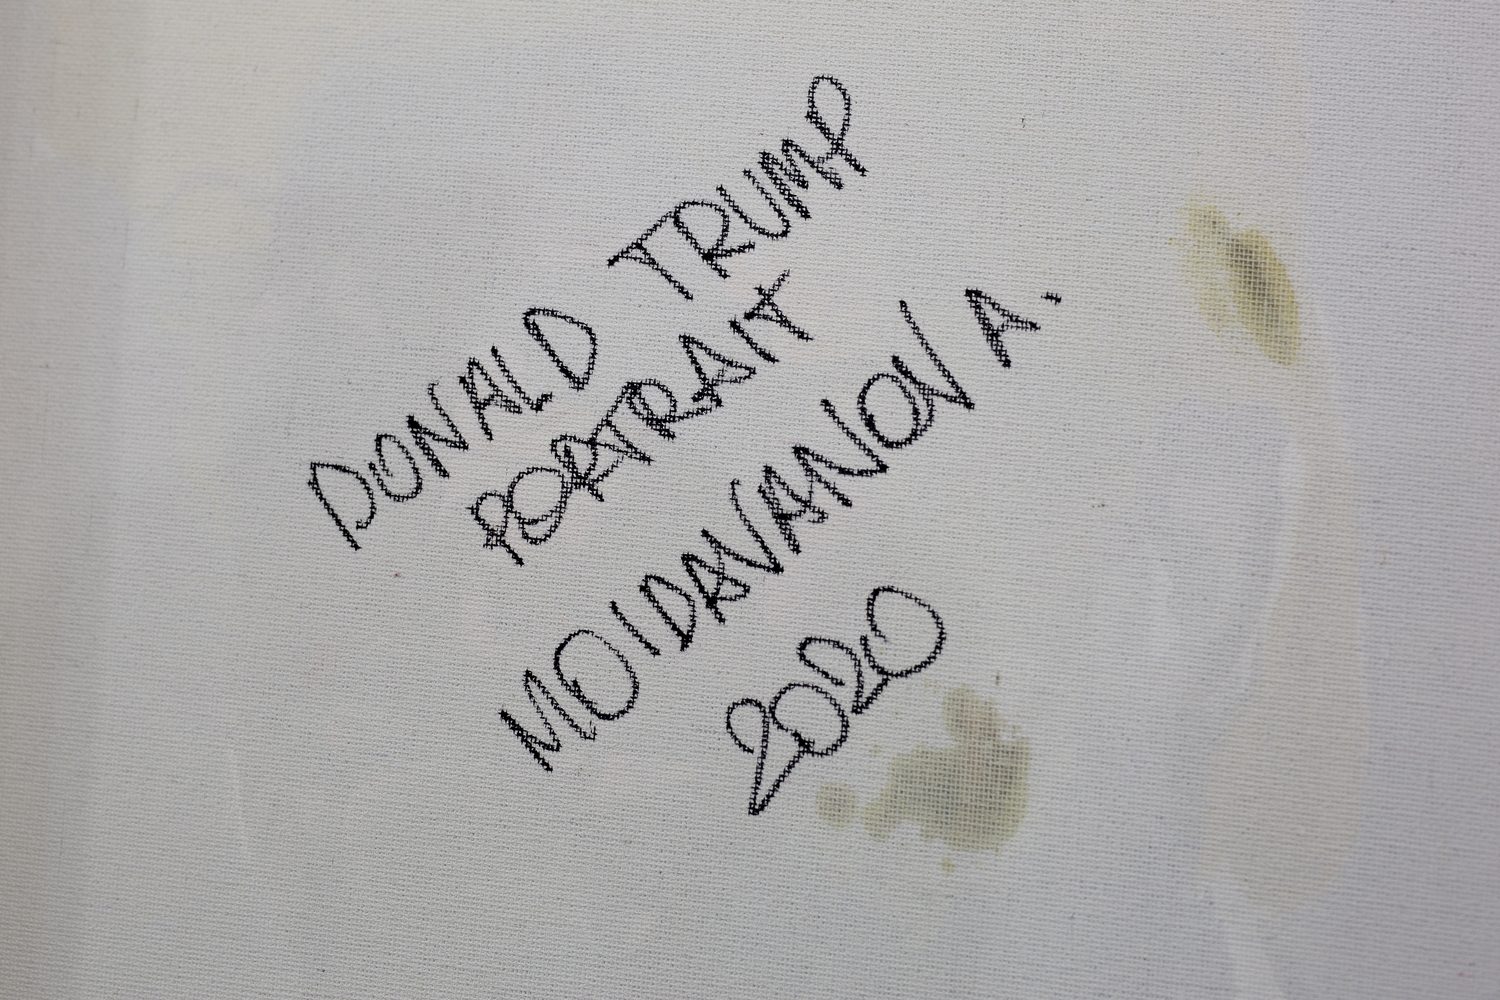 DONALD TRUMP
PORTRAIT
MOIDAVANOV A.
2020